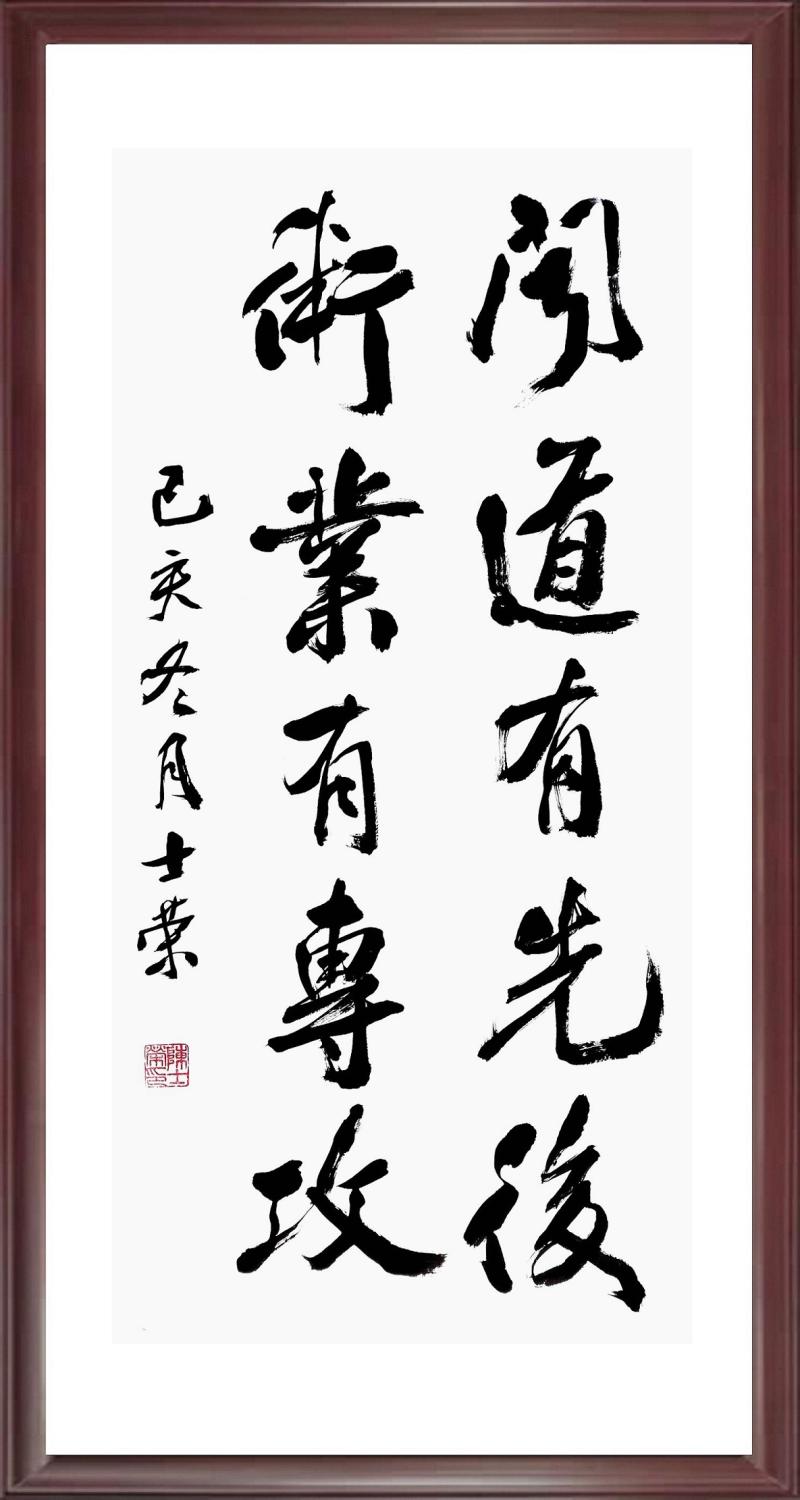 聞道有先後
術業有專攻
己亥冬月士荣
陳士榮印